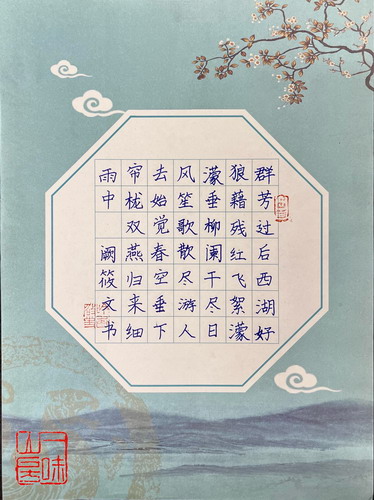 群芳过后西湖好
狼藉残红飞絮濛
濛垂柳阑干尽日
风笙歌散尽游人
去始觉春空垂下
帘栊双燕归来细
雨中 阙筱文书